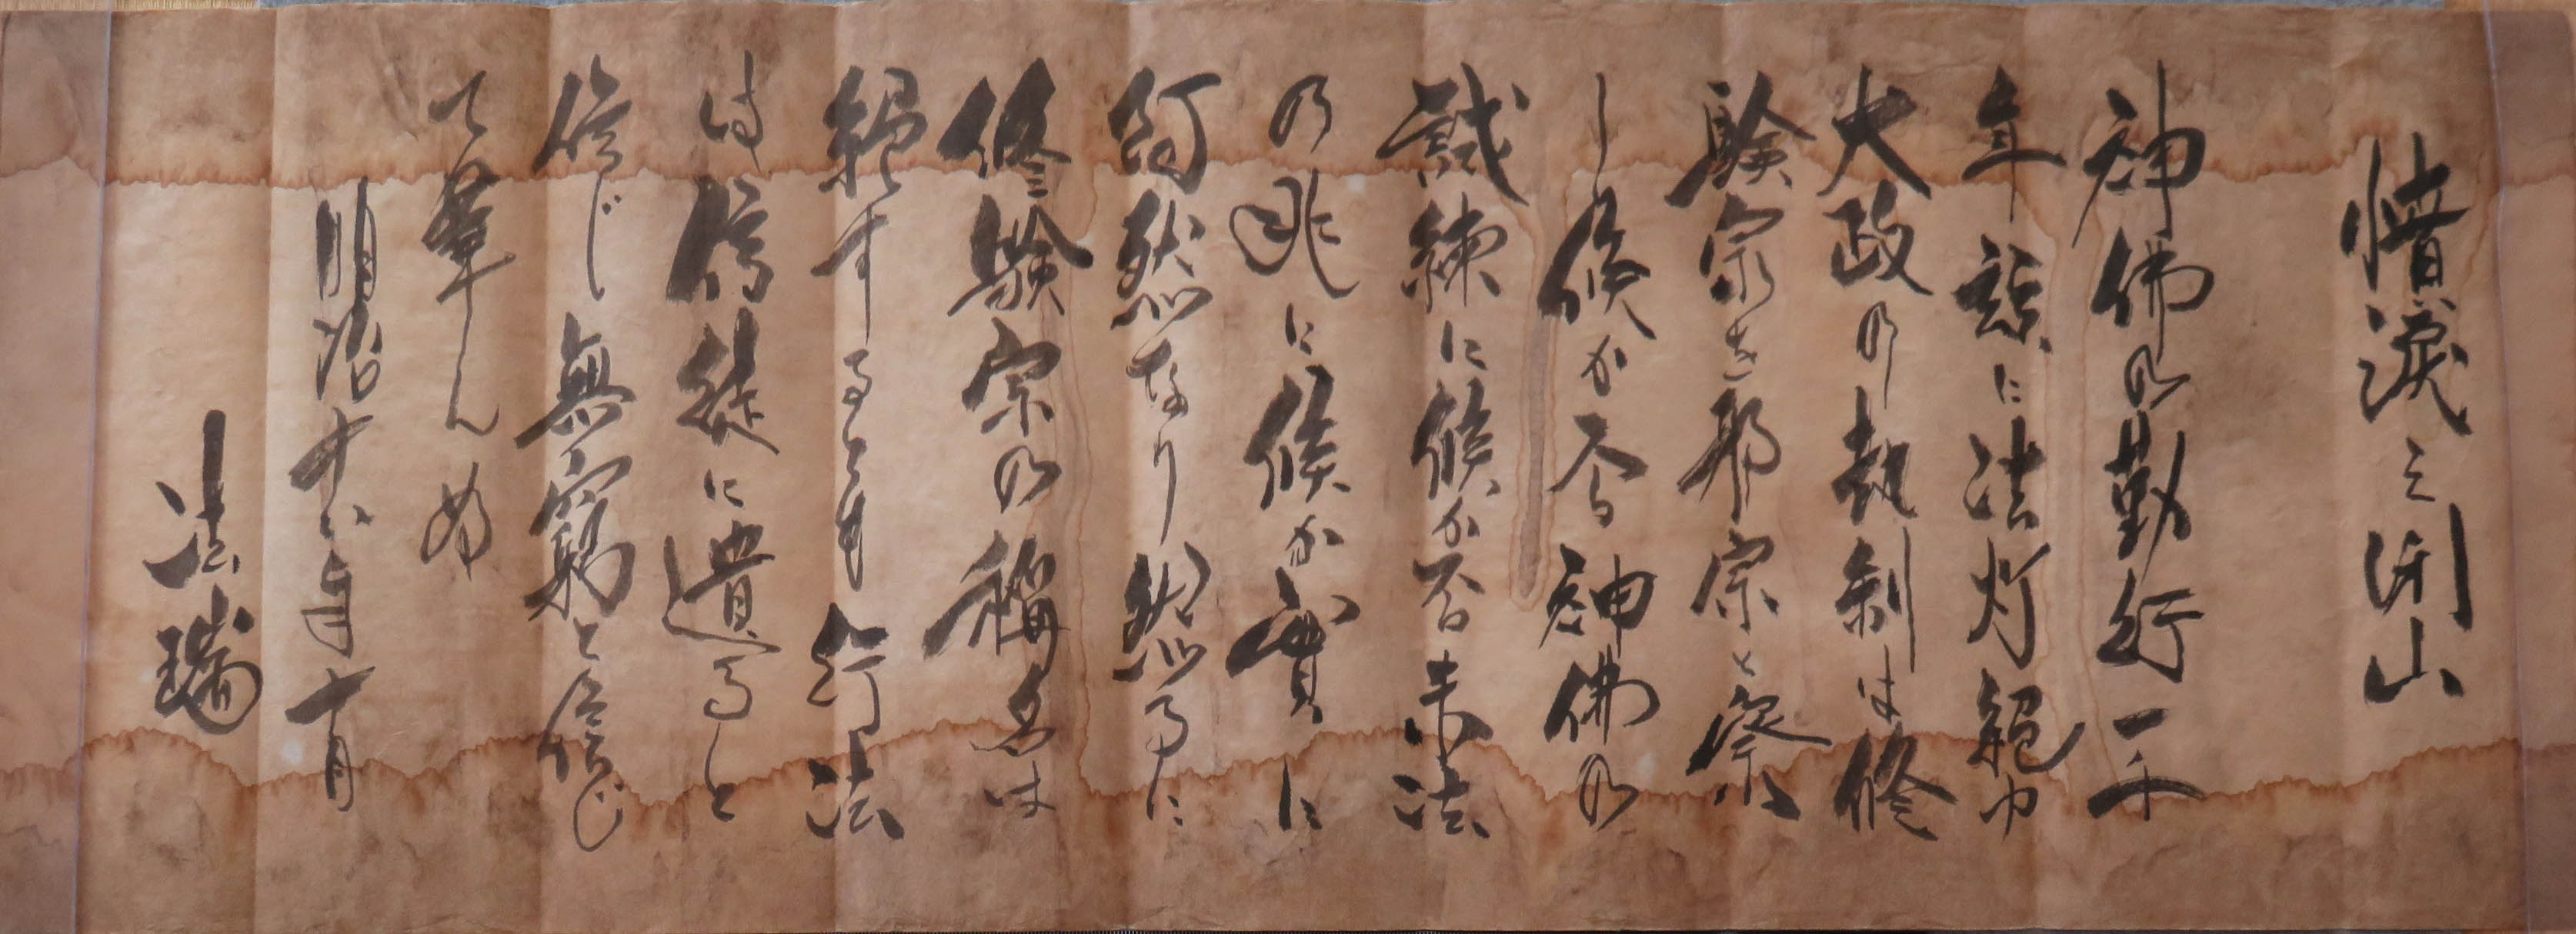 憤涙之閉山
神佛の勤行一千
年諒に法灯絶つ
大政の勅制は修
験宗を邪宗と察
し候か否神佛の
試練に候か否末法
の兆に候か實に
愕然なり然るに
修験宗の稱名は
絶すするとも行法
は信徒に遺ると
信じ無窮と信じ
て筆しぬ
明治十八年十月
法瑞